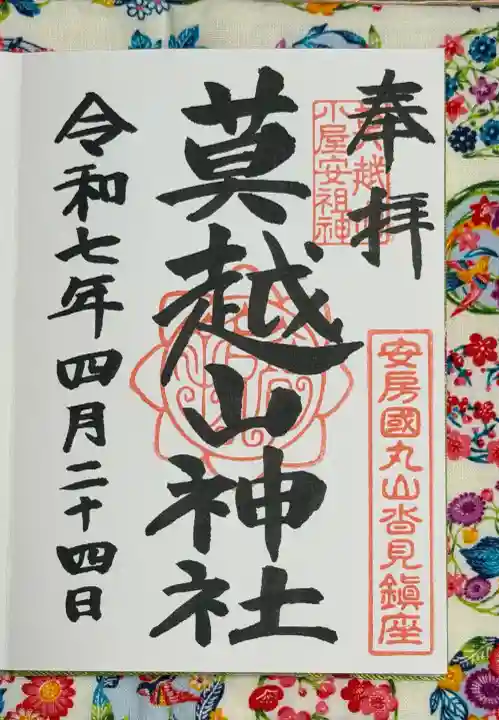 奉拝
小屋安祖神
安房國丸山沓見鎮座
莫越山神社
令和七年四月二十四日